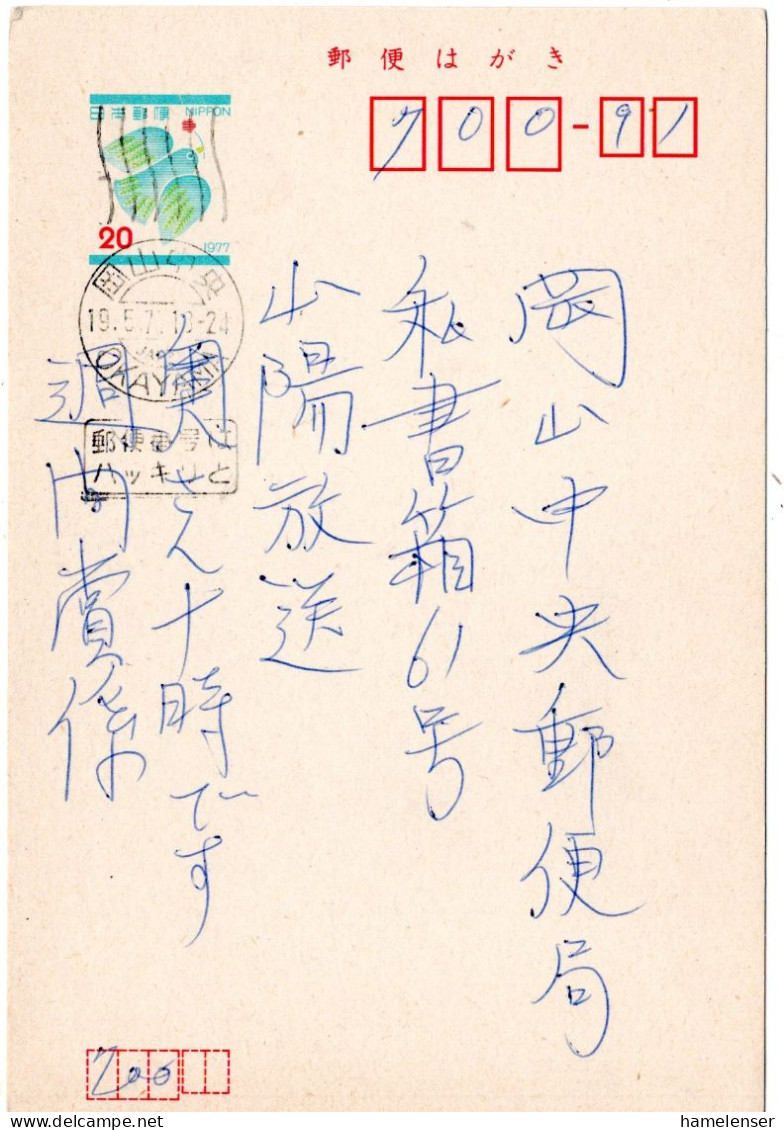 郵便はがき
日本郵便 NIPPON
20
1977
700-91
岡山中央郵便局
私書箱61号
山陽放送
奥さん十時です
週間賞係
岡山中央
19.5.7.
18-24
OKAYAMA
郵便番号は
ハッキリと
700
hamelenser